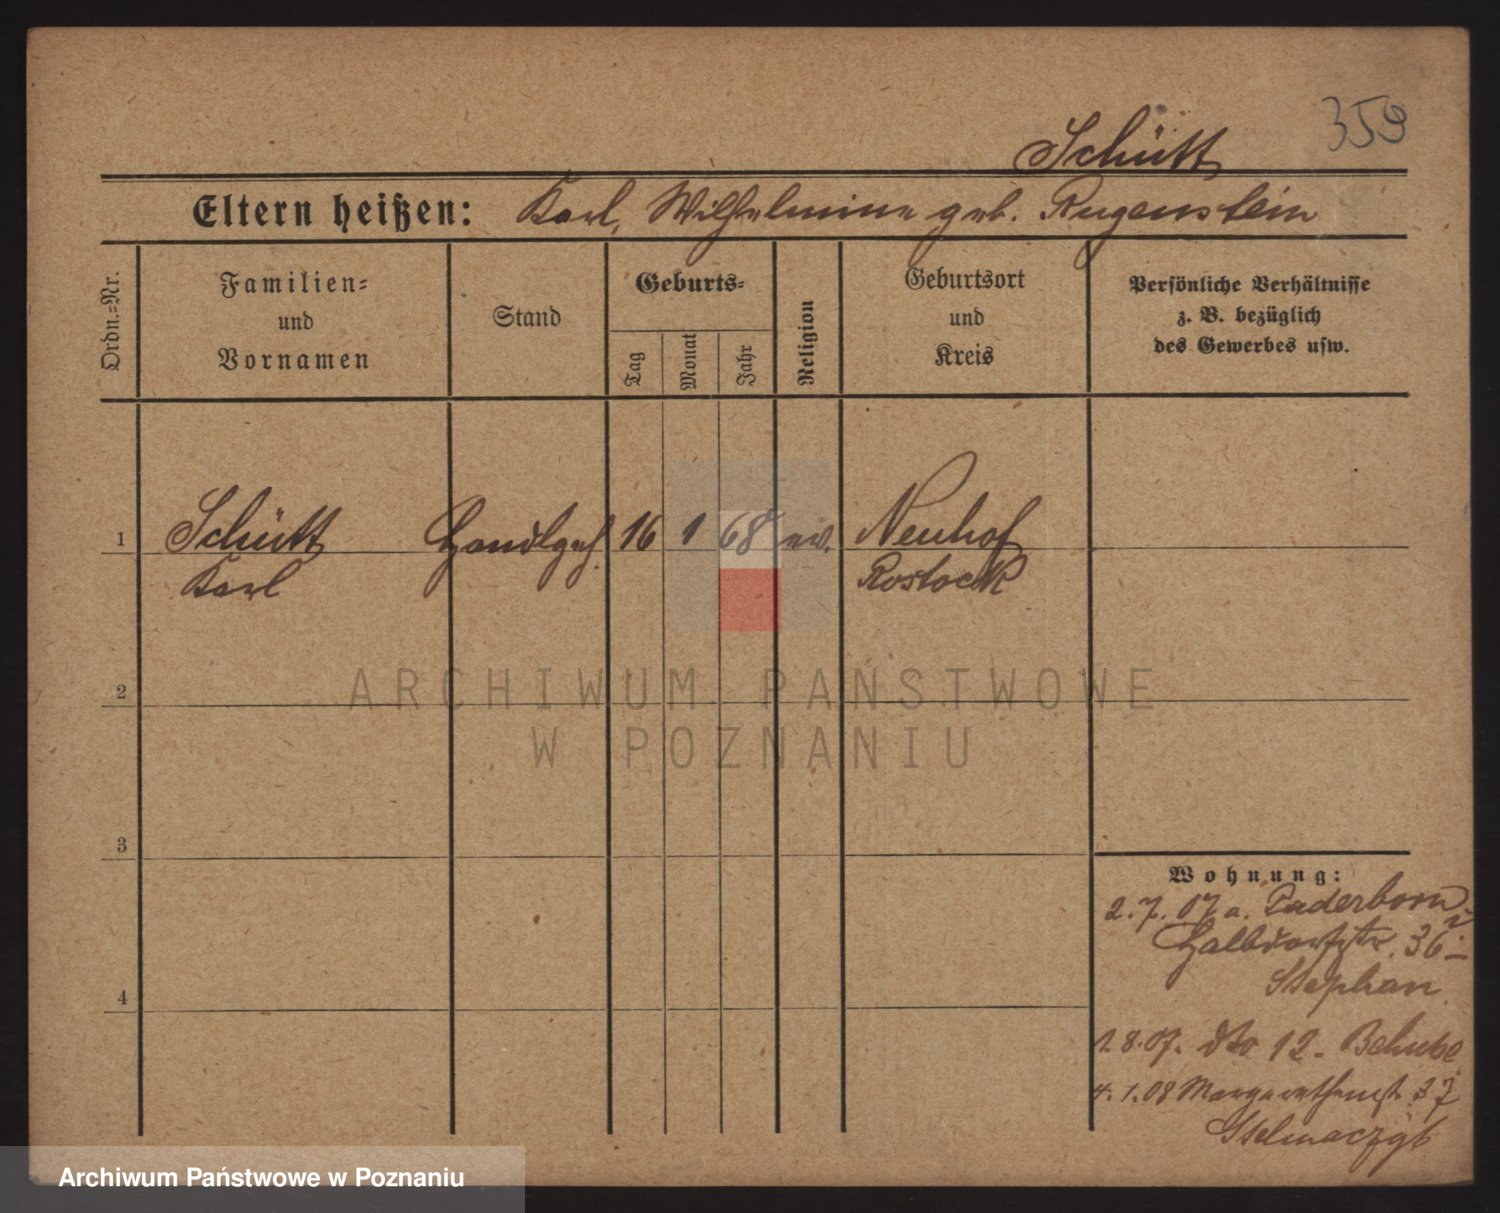 359
Schütt
Eltern heißen: Karl, Wilhelmine geb. Rugenstein
Ordn.=Nr.
Familien=
und
Vornamen
Stand
Geburts=
Tag
Monat
Jahr
Religion
Geburtsort
und
Kreis
Persönliche Verhältnisse
z. B. bezüglich
des Gewerbes usw.
1 Schütt Handlgeh. 16 1 68 ev. Neuhof
Karl Rostock
2
3
4
Wohnung:
2.7.07 a. Paderborn
36
Stephan
1.8.07. dto 12.
4.1.08 Margarethenst. 37
ARCHIWUM PAŃSTWOWE
W POZNANIU
Archiwum Państwowe w Poznaniu